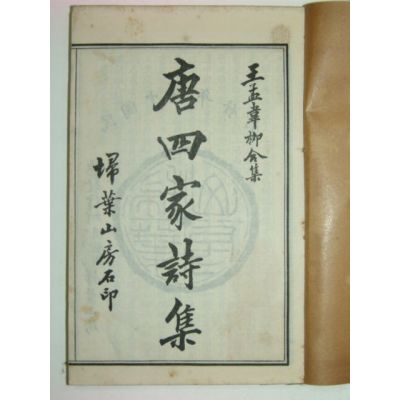 王孟韋柳合集
唐四家詩集
埽葉山房石印